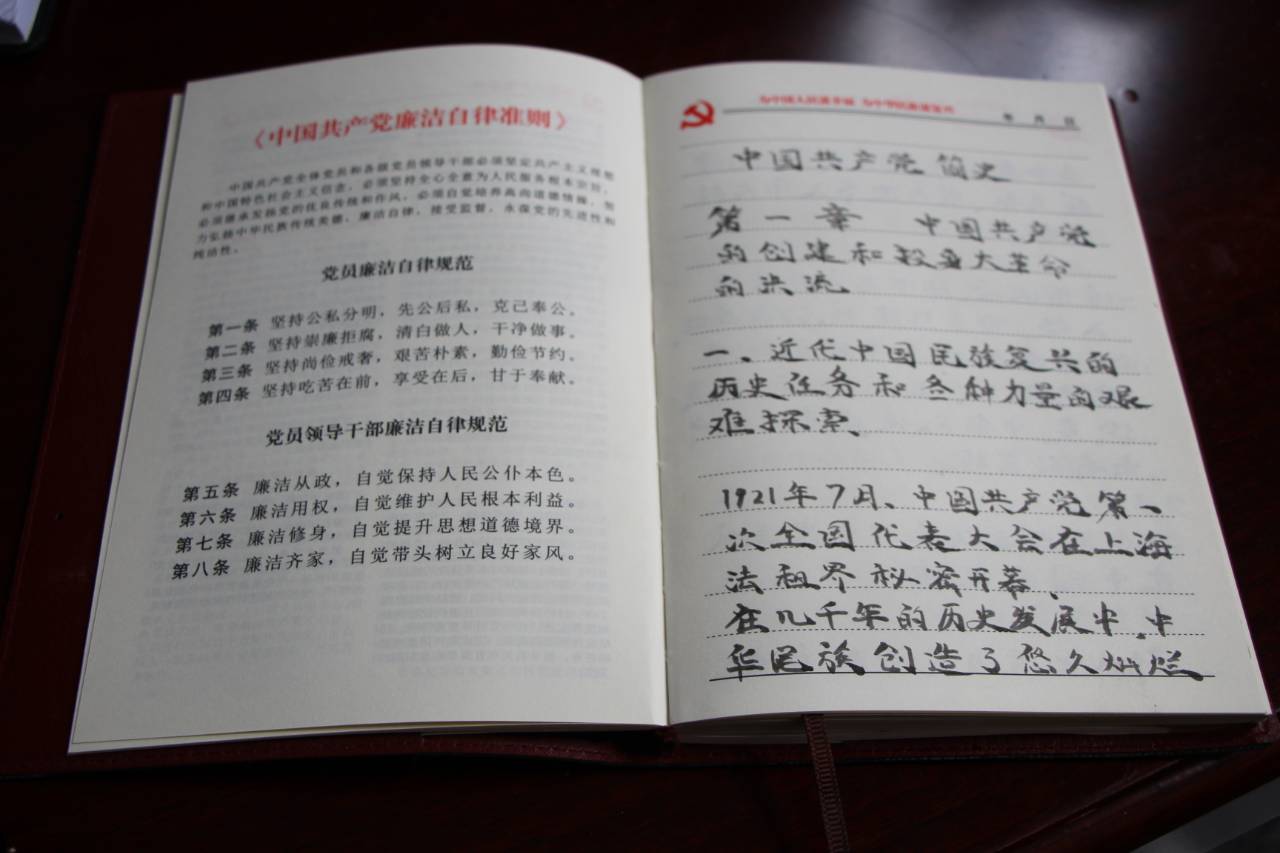 《中国共产党廉洁自律准则》
中国共产党全体党员和各级党员领导干部必须坚定共产主义理想
和中国特色社会主义信念，必须坚持全心全意为人民服务根本宗旨，
必须继承发扬党的优良传统和作风，必须自觉培养高尚道德情操，努
力弘扬中华民族传统美德，廉洁自律，接受监督，永葆党的先进性和
纯洁性。
党员廉洁自律规范
第一条 坚持公私分明，先公后私，克己奉公。
第二条 坚持崇廉拒腐，清白做人，干净做事。
第三条 坚持尚俭戒奢，艰苦朴素，勤俭节约。
第四条 坚持吃苦在前，享受在后，甘于奉献。
党员领导干部廉洁自律规范
第五条 廉洁从政，自觉保持人民公仆本色。
第六条 廉洁用权，自觉维护人民根本利益。
第七条 廉洁修身，自觉提升思想道德境界。
第八条 廉洁齐家，自觉带头树立良好家风。
为中国人民谋幸福 为中华民族谋复兴
年 月 日
中国共产党简史
第一章 中国共产党
的创建和投身大革命
的洪流
一、近代中国民族复兴的
历史任务和各种力量的艰
难探索
1921年7月、中国共产党第一
次全国代表大会在上海
法租界秘密开幕、
在几千年的历史发展中，中
华民族创造了悠久灿烂